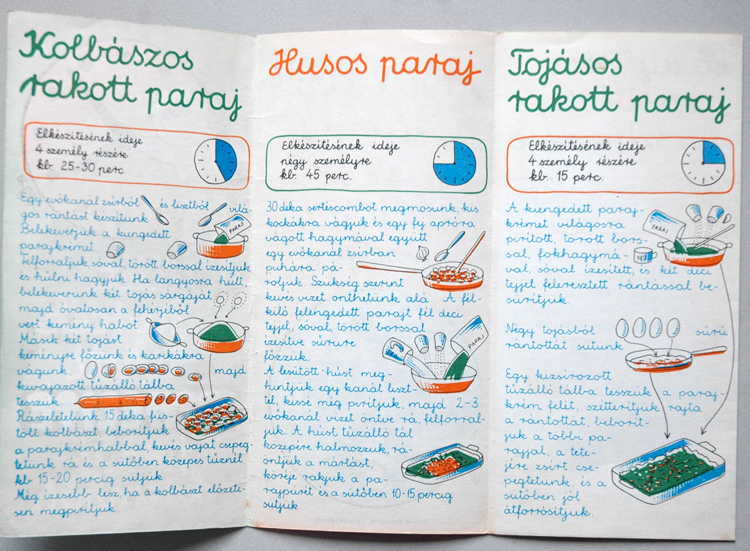 Kolbászos
rakott paraj
Elkészítésének ideje
4 személy részére
kb. 25-30 perc.
Egy evőkanál zsírból és lisztből vilá-
gos rántást készítünk.
Belekeverjük a kiengedett
parajkrémet.
PARAJ
Felforraljuk, sóval, törött borssal ízesítjük
és hűlni hagyjuk. Ha langyosra hűlt,
belekeverünk két tojás sárgáját
majd óvatosan a fehérjéből
vert kemény habot.
Másik két tojást
keményre főzünk és karikákra
vágunk, majd
kivajazott tűzálló tálba
tesszük.
Rászeletelünk 15 deka füs-
tölt kolbászt, beborítjuk
a parajkrémhabbal, kevés vajat csepeg-
tetünk rá és a sütőben közepes tűznél
kb. 15-20 percig sütjük.
Még ízesebb lesz, ha a kolbászt előzete-
sen megpirítjuk.
Husos paraj
Elkészítésének ideje
négy személyre
kb. 45 perc.
30 deka sertéscombot megmosunk, kis
kockákra vágjuk és egy fej apróra
vágott hagymával együtt
egy evőkanál zsírban
puhára pá-
roljuk. Szükség szerint
kevés vizet önthetünk alá. A fél-
kiló felengedett parajt fél deci
tejjel, sóval, törött borssal
ízesítve sűrűre
főzzük.
PARAJ
A lesütött húst meg-
hintjük egy kanál liszt-
tel, kissé még pirítjuk, majd 2-3
evőkanál vizet öntve rá, felforral-
juk. A húst tűzálló tál
közepére halmozzuk, rá-
öntjük a mártást,
köréje rakjuk a pa-
rajpürét és a sütőben 10-15 percig
sütjük
Tojásos
rakott paraj
Elkészítésének ideje
4 személy részére
kb. 15 perc.
A kiengedett paraj-
krémet világosra
pirított, törött bors-
sal, fokhagymá-
val, sóval ízesített, és két deci
tejjel feleresztett rántással be-
sűrítjük.
PARAJ
TEJ
Négy tojásból sűrű
rántottát sütünk.
Egy kizsírozott
tűzálló tálba tesszük a paraj-
krém felét, szétterítjük rajta
a rántottát, beborít-
juk a többi pa-
rajjal, a tete-
jére zsírt cse-
pegtetünk, és a
sütőben jól
átforrósítjuk.